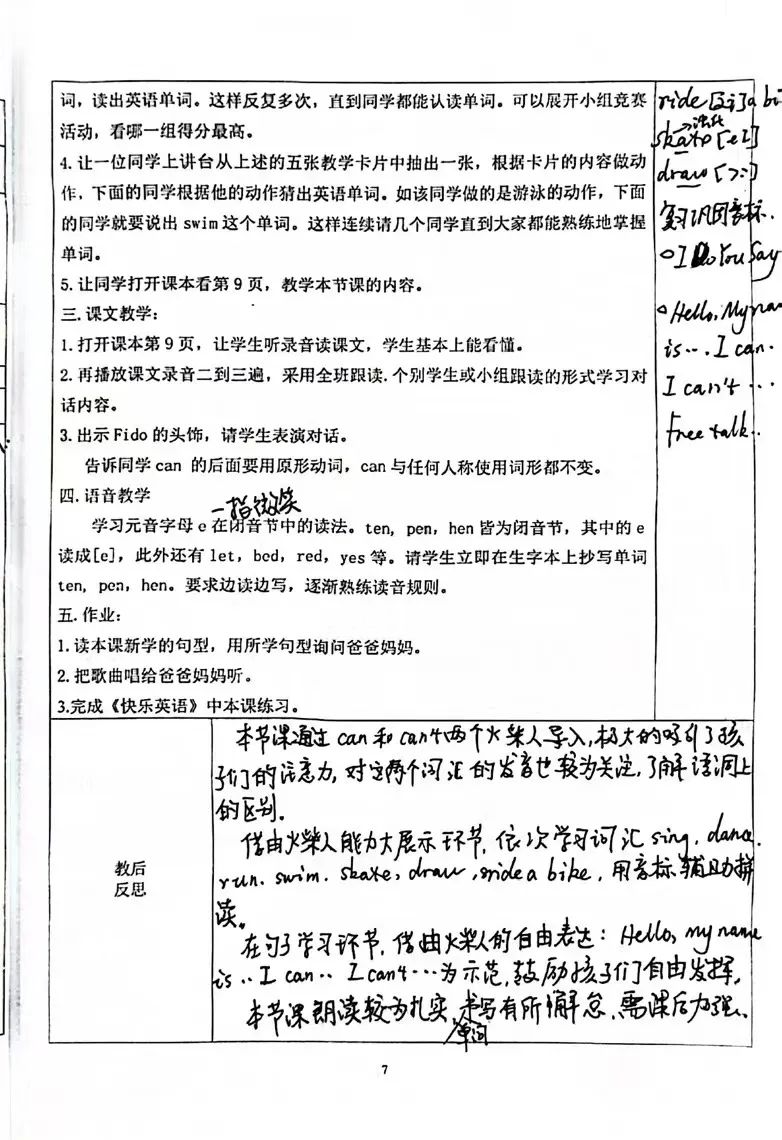 词，读出英语单词。这样反复多次，直到同学都能认读单词。可以展开小组竞赛
活动，看哪一组得分最高。
4. 让一位同学上讲台从上述的五张教学卡片中抽出一张，根据卡片的内容做动
作，下面的同学根据他的动作猜出英语单词。如该同学做的是游泳的动作，下面
的同学就要说出 swim 这个单词。这样连续请几个同学直到大家都能熟练地掌握
单词。
5. 让同学打开课本看第 9 页，教学本节课的内容。
三. 课文教学：
1. 打开课本第 9 页，让学生听录音读课文，学生基本上能看懂。
2. 再播放课文录音二到三遍，采用全班跟读. 个别学生或小组跟读的形式学习对
话内容。
3. 出示 Fido 的头饰，请学生表演对话。
告诉同学 can 的后面要用原形动词，can 与任何人称使用词形都不变。
四. 语音教学
一指微笑
学习元音字母 e 在闭音节中的读法。ten, pen, hen 皆为闭音节，其中的 e
读成[e]，此外还有 let, bed, red, yes 等。请学生立即在生字本上抄写单词
ten, pen, hen。要求边读边写，逐渐熟练读音规则。
五. 作业：
1. 读本课新学的句型，用所学句型询问爸爸妈妈。
2. 把歌曲唱给爸爸妈妈听。
3.完成《快乐英语》中本课练习。
ride [ai] a bi
skate [ei]
draw [ɔ:]
复习巩固音标..
I Do You Say
Hello, My name
is... I can..
I can't ...
free talk..
教后
反思
本节课通过 can 和 can't 两个火柴人导入，极大的吸引了孩
子们的注意力，对这两个词汇的发音也较为关注，了解语调上
的区别。
借由火柴人能力大展示环节，依次学习词汇 sing, dance,
run. swim. skate, draw, ride a bike, 用音标辅助拼
读。
在句子学习环节，借由火柴人的自由表达：Hello, my name
is .. I can .. I can't ... 为示范，鼓励孩子们自由发挥，
本节课朗读较为扎实，书写有所懈怠，需课后加强。
单词
7